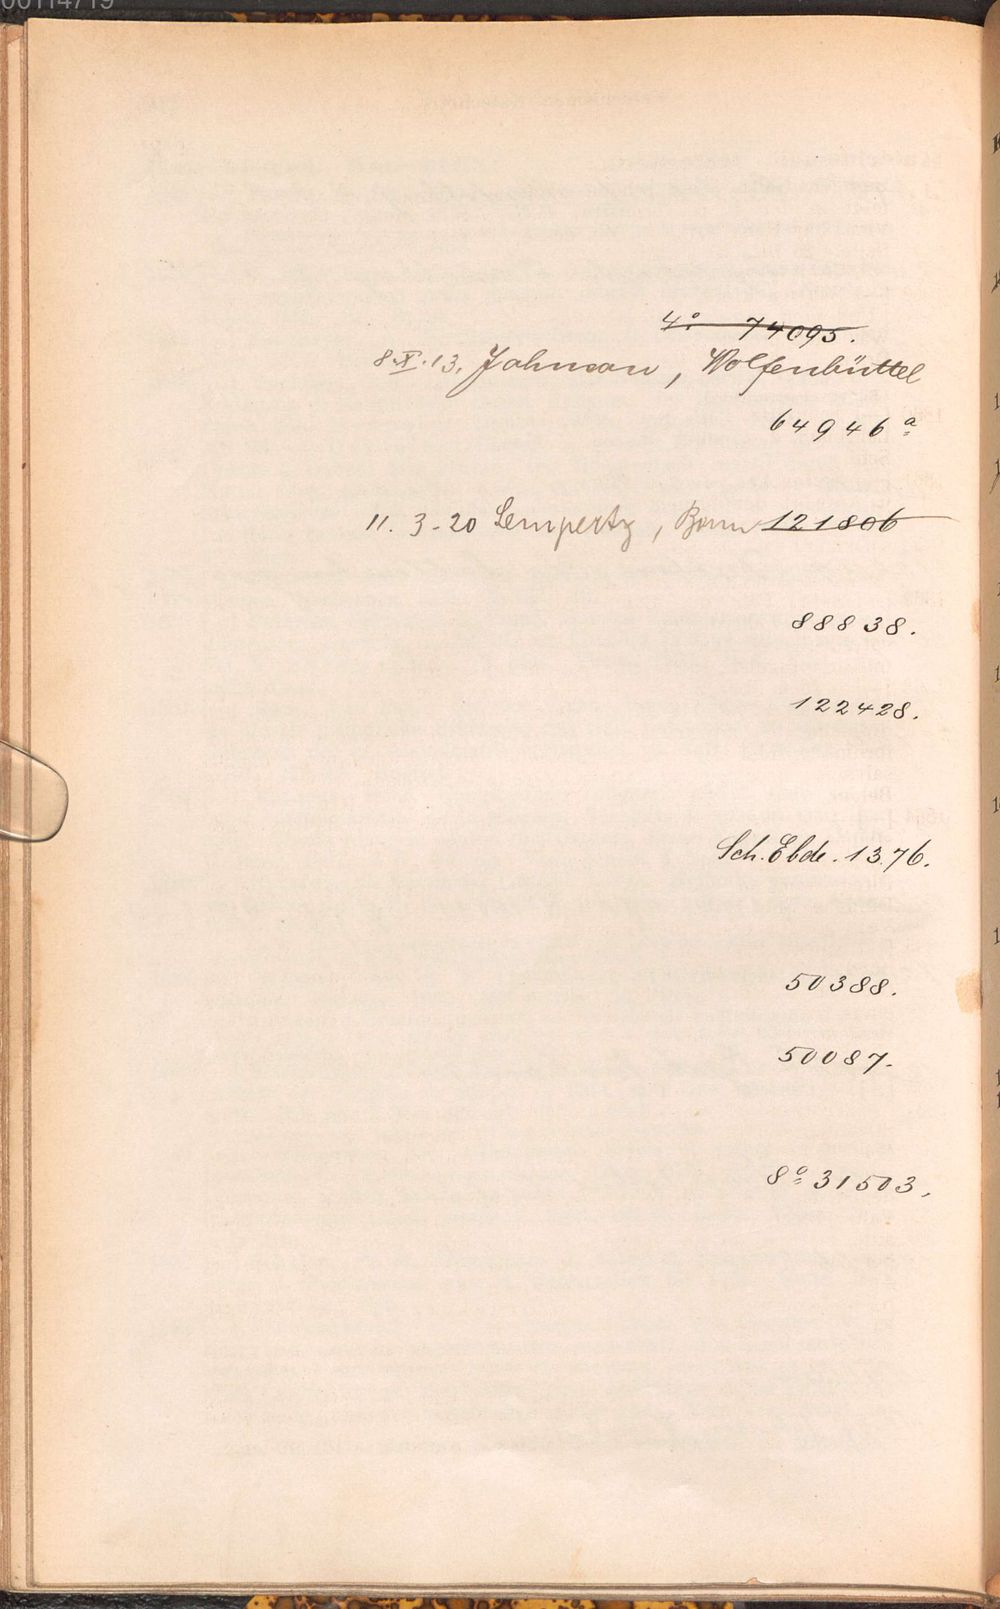 00114719
4º 74095.
8.X.13. Johnson, Wolfenbüttel
64946ª
11. 3-20 Lempertz, Bonn 121806
88838.
122428.
Sch. Ebde. 1376.
50388.
50087.
8º 31503.